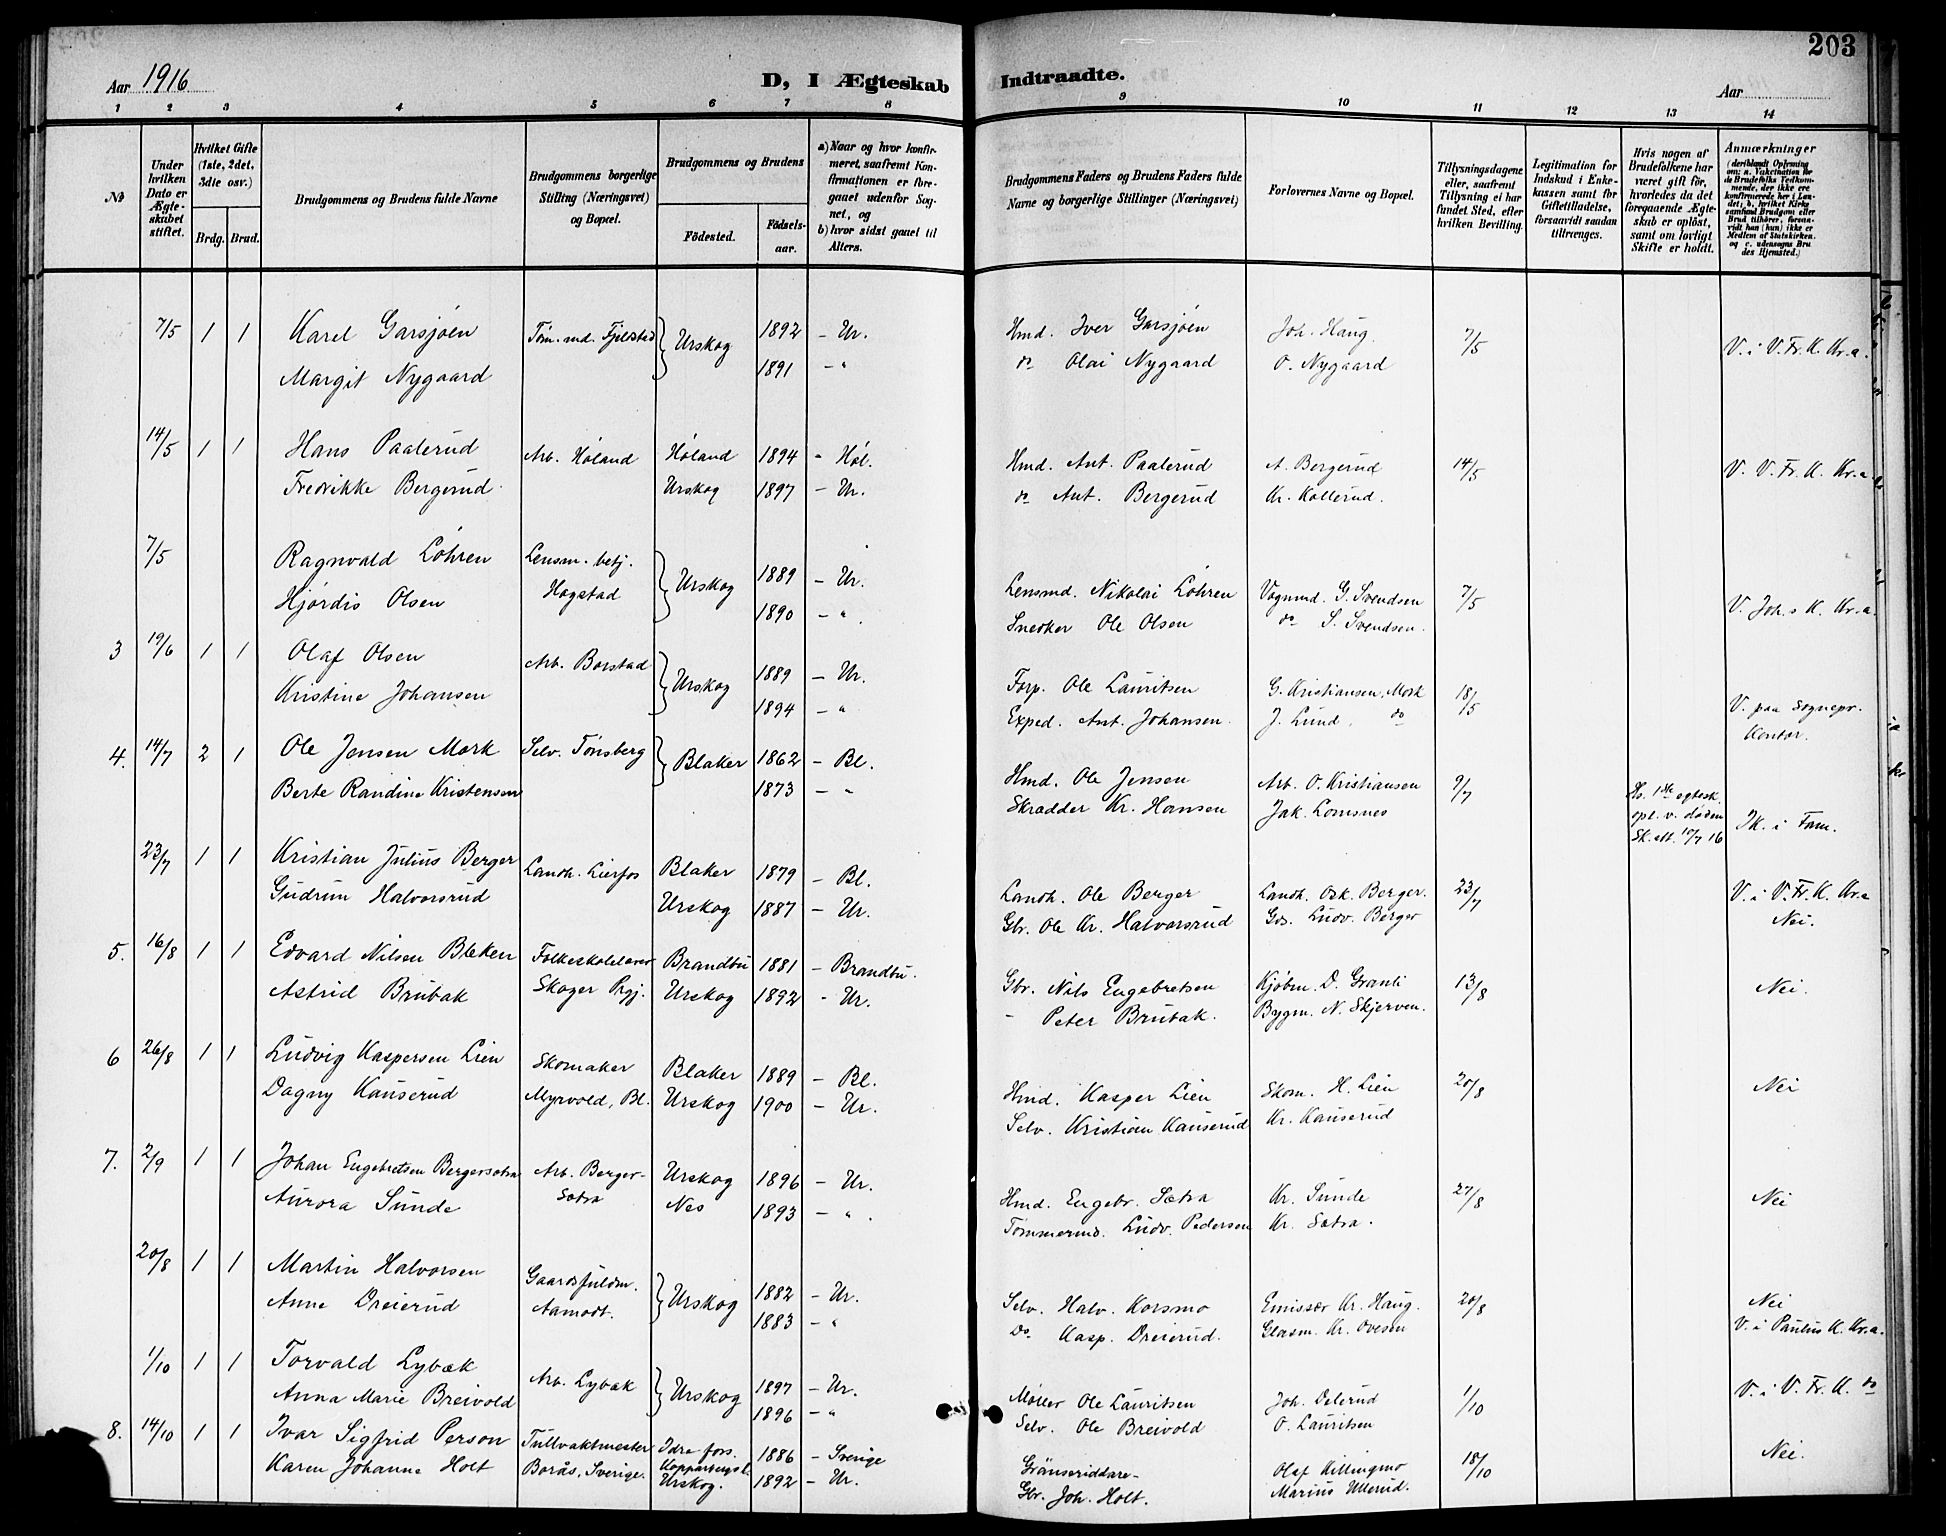 203
Aar 1916
D, I Ægteskab Indtraadte.
Aar
1 2 3 4 5 6 7 8 9 10 11 12 13 14
No
Under hvilken Dato er Ægteskabet stiftet.
Hvilket Gifte (1ste, 2det, 3die osv.)
Brdg. Brud.
Brudgommens og Brudens fulde Navne
Brudgommens borgerlige Stilling (Næringsvei) og Bopæl.
Brudgommens og Brudens
Fødested.
Fødselsaar.
a) Naar og hvor konfirmeret, saafremt Konfirmationen er foregaaet udenfor Sognet, og
b) hvor sidst gaaet til Alters.
Brudgommens Faders og Brudens Faders fulde Navne og borgerlige Stillinger (Næringsvei)
Forlovernes Navne og Bopæl.
Tillysningsdagene eller, saafremt Tillysning ei har fundet Sted, efter hvilken Bevilling.
Legitimation for Indskud i Enkekassen samt for Giftetilladelse, forsaavidt saadan tiltrænges.
Hvis nogen af Brudefolkene har været gift før, hvorledes da det foregaaende Ægteskab er opløst, samt om lovligt Skifte er holdt.
Anmærkninger (deriblandt Oplysning om: a. Vakcination for de Brudefolks Vedkommende, der ikke ere konfirmerede her i Landet; b. hvilket Kirkesamfund Brudgom eller Brud tilhører, forsaavidt han (hun) ikke er Medlem af Statskirken. og c. udensogns Brudes Hjemsted.)
7/5 1 1 Karel Garsjøen Tøm.md. Fjelstad Urskog 1892 – Ur. Hmd. Iver Garsjøen Joh. Haug 7/5 V. i V. Fr. K. Kr.a.
Margit Nygaard 1891 – " do Olai Nygaard O. Nygaard
14/5 1 1 Hans Paalerud Arb. Høland Høland 1894 - Høl. Hmd. Ant. Paalerud A. Bergerud 14/5 V. V. Fr. K. Kr.a.
Fredrikke Bergerud Urskog 1897 – Ur. do Ant. Bergerud Kr. Kollerud.
7/5 Ragnvald Løhren Lensm. betj. Urskog 1889 – Ur. Lensmd. Nikolai Løhren Vognmd. G. Svendsen 7/5 V. Joh.s K. Kr.a.
Hjørdis Olsen Hogstad 1890 – " Snedker Ole Olsen do S. Svendsen.
3 19/6 1 1 Olaf Olsen Arb. Borstad Urskog 1889 – Ur. Forp. Ole Lauritsen G. Kristiansen, Mork 18/5 V. paa Sognepr.
Kristine Johansen 1894 – " Exped. Ant. Johansen. J. Lund, do Kontor.
4. 14/7 2 1 Ole Jensen Mork Selv. Tønsberg Blaker 1862 – Bl. Hmd. Ole Jensen Arb. O. Kristiansen 9/7 Hs. 1ste egtesk. opl. v. døden Sk. att. 10/7 16 IK. i Fam.
Berte Randine Kristensen 1873 – " Skrædder Kr. Hansen Jak. Lomsnes
23/7 1 1 Kristian Julius Berger Landh. Lierfos Blaker 1879 – Bl. Landh. Ole Berger Landh. Osk. Berger. 23/7 V. i V. Fr. K. Kr.a
Gudrun Halvorsrud Urskog 1887 – Ur. Gbr. Ole Kr. Halvorsrud Gds. Ludv. Berger Nei.
5. 16/8 1 1 Edvard Nilsen Bleken Folkeskolelærer Brandbu 1881 – Brandbu. Gbr. Nils Engebretsen Kjøbm. D. Granli 13/8 Nei.
Astrid Brubak Skoger Prgj. Urskog 1892 - Ur. – Peter Brubak. Bygm. N. Skjerven.
6 26/8 1 1 Ludvig Kaspersen Lien Skomaker Blaker 1889 – Bl. Hmd. Kasper Lien Skom. H. Lien 20/8 Nei
Dagny Kauserud Myrvold, Bl. Urskog 1900 – Ur. Selv. Kristian Kauserud Kr. Kauserud
7. 2/9 1 1 Johan Engebretsen Bergersætra Arb. Berger- Urskog 1896 – Ur. Hmd. Engebr. Sætra Kr. Sunde 27/8 Nei
Aurora Sunde sætra Nes 1893 – " Tømmermd. Ludv. Pedersen Kr. Sætra.
20/8 1 1 Martin Halvorsen Gaardsfuldm. Urskog 1882 – Ur. Selv. Halv. Korsmo Emissær Kr. Haug. 20/8 Nei
Anne Dreierud Aamodt. 1883 – " Do Kasp. Dreierud. Glasm. Kr. Ovesen V. i Paulus K. Kr.a.
1/10 1 1 Torvald Lybæk Arb. Lybæk Urskog 1897 – Ur. Møller Ole Lauritsen Joh. Delerud 1/10 V. i V. Fr. K. do
Anna Marie Breivold 1896 – " Selv. Ole Breivold O. Lauritsen
8. 14/10 1 1 Ivar Sigfrid Person Tullvaktmester Idre førs. Kopparbergs l. 1886 – Sverige Gränsriddare- Olaf Killingmo 18/10 Nei.
Karen Johanne Holt Borås, Sverige. Urskog. 1892 – Ur. Gbr. Joh. Holt. Marius Ullerud.